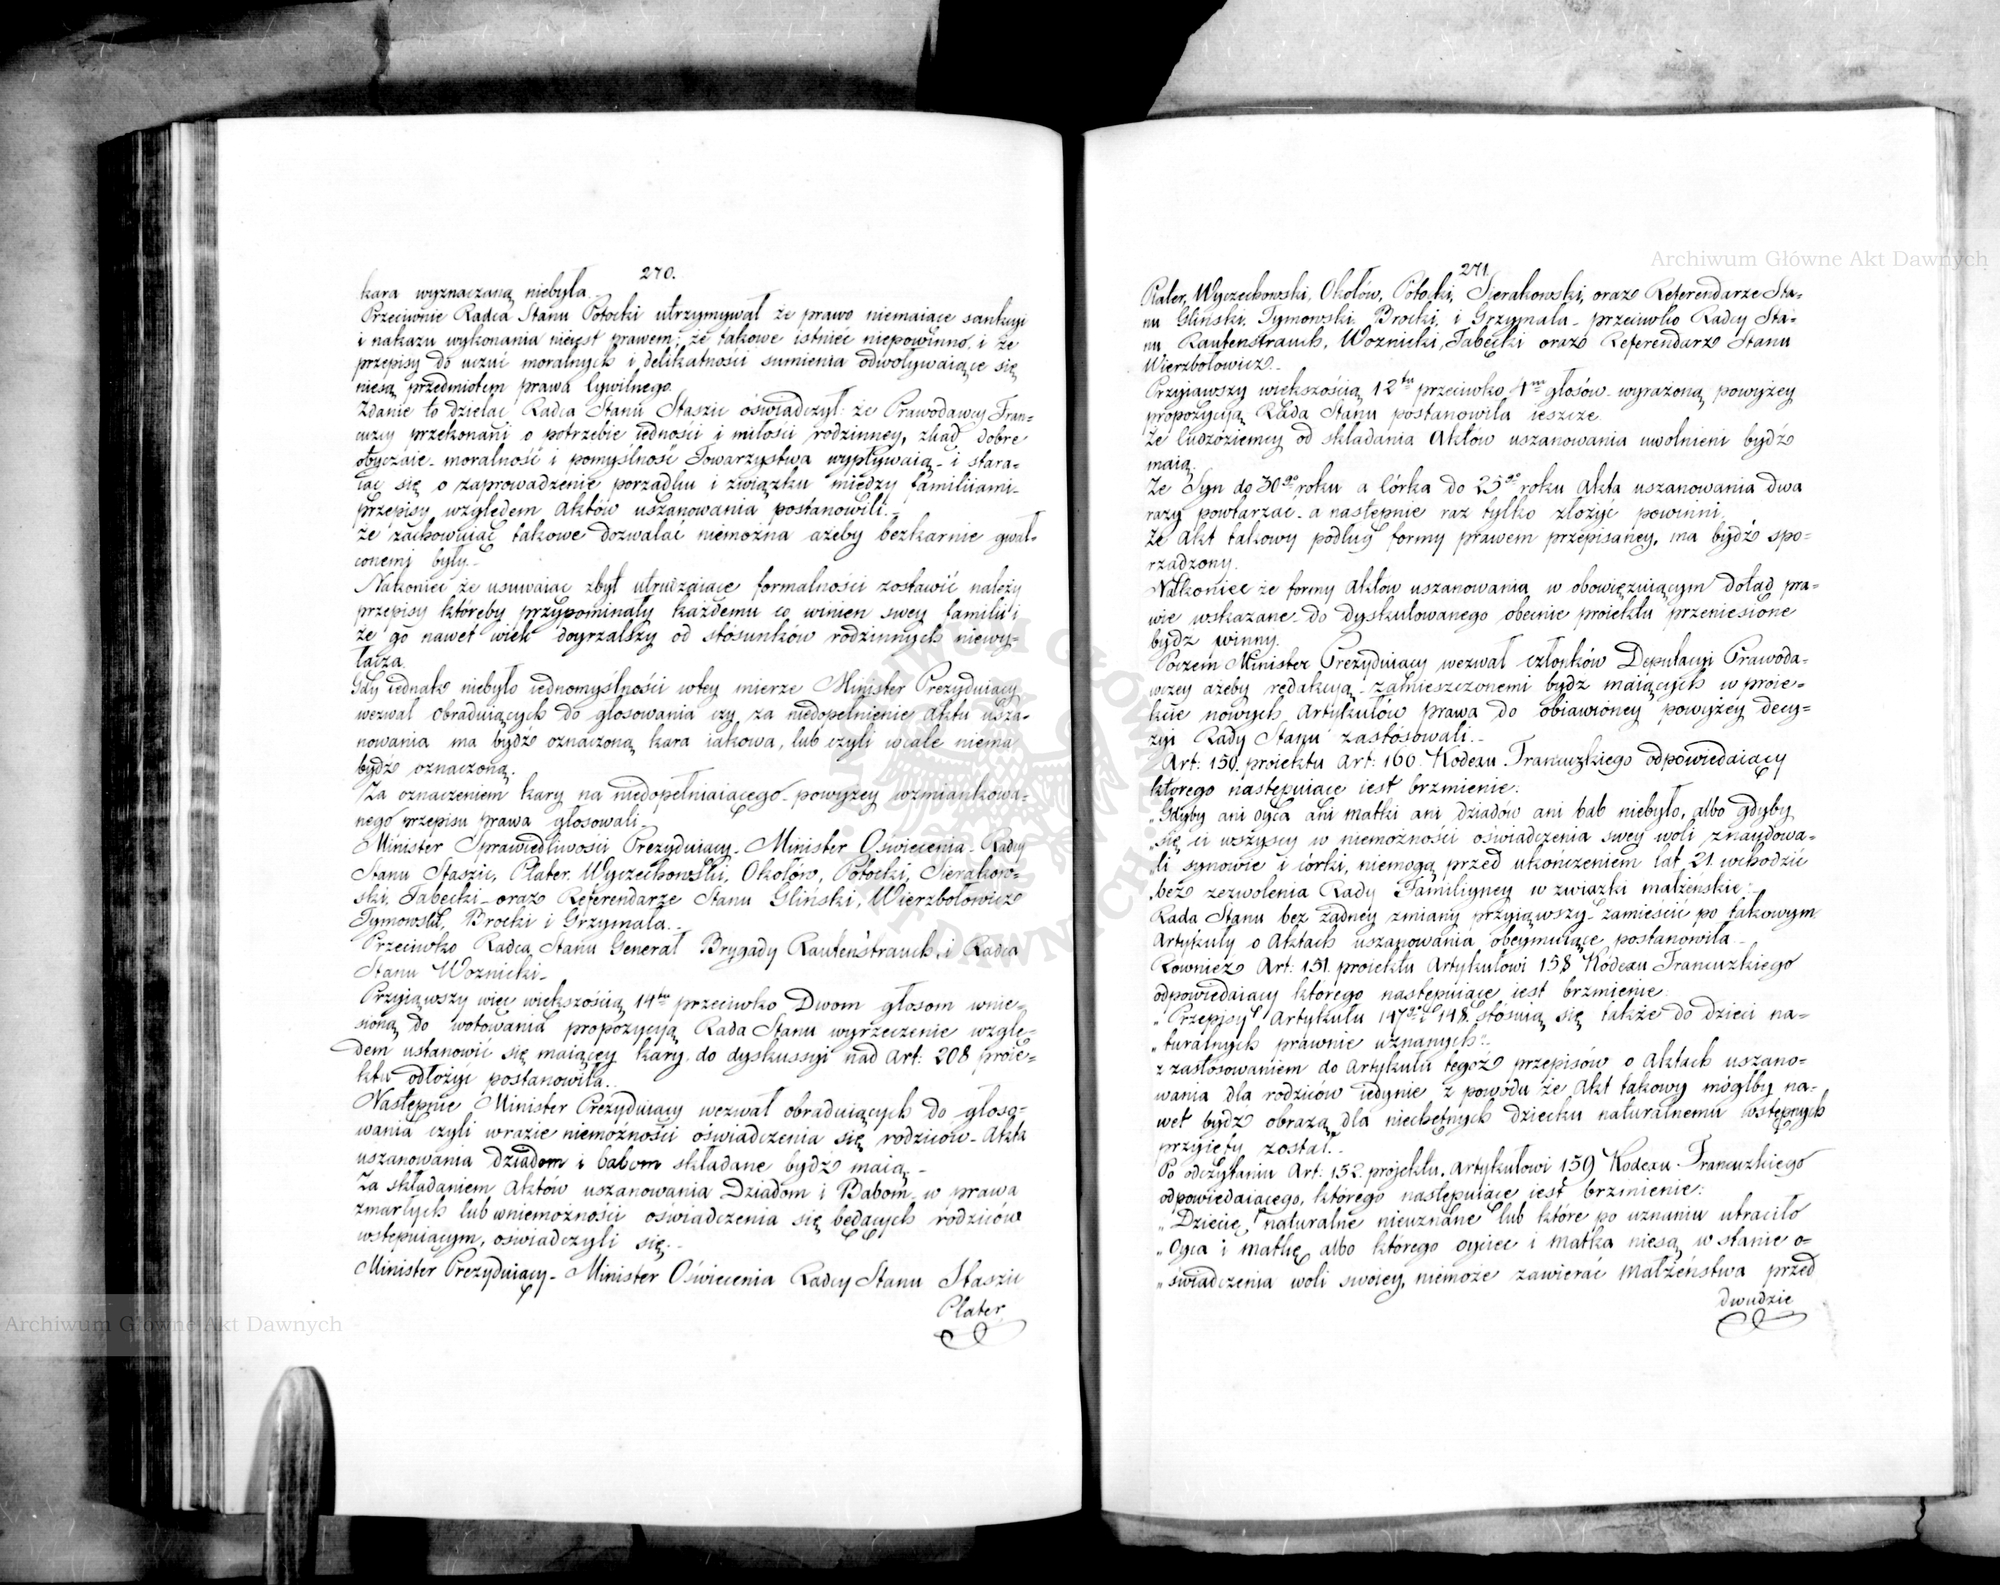 270.
kara wyznaczaną niebyła.
Przeciwnie Radca Stanu Potocki utrzymywał że prawo niemaiące sankcyi
i nakazu wykonania nieiest prawem; że takowe istnieć niepowinno, i że
przepisy do uczuć moralnych i delikatności sumienia odwoływaiące się
niesą przedmiotem prawa Cywilnego.
Zdanie to dzieląc Radca Stanu Staszic oświadczył: że Prawodawcy Fran-
cuzcy przekonani o potrzebie iedności i miłości rodzinney, zkąd dobre
obyczaie - moralność i pomyślność Towarzystwa wypływaią - i stara-
iąc się o zaprowadzenie porządku i związku między familiiami -
przepisy względem Aktów uszanowania postanowili. -
że zachowuiąc takowe dozwalać niemożna ażeby bezkarnie gwał-
conemi były. -
Nakoniec że usuwaiąc zbyt utrudzaiące formalności zostawić należy
przepisy któreby przypominały każdemu co winien swey familii i
że go nawet wiek doyrzalszy od stosunków rodzinnych niewy-
łącza.
Gdy iednak niebyło iednomyślności wtey mierze Minister Prezyduiący
wezwał obraduiących do głosowania czy za niedopełnienie aktu usza-
nowania ma bydź oznaczoną kara iakowa, lub czyli wcale niema
bydź oznaczoną.
Za oznaczeniem kary na niedopełniaiącego - powyżey wzmiankowa-
nego przepisu prawa głosowali
Minister Sprawiedliwości Prezyduiący - Minister Oświecenia - Radcy
Stanu Staszic, Plater, Wyczechowski, Okołów, Potocki, Sierakow-
ski, Tabęcki - oraz Referendarze Stanu Gliński, Wierzbołowicz
Tymowski, Brocki i Grzymała. -
Przeciwko Radca Stanu Generał Brygady Rautenstrauch, i Radca
Stanu Woznicki -
Przyiąwszy więc większością 14tu przeciwko Dwom głosom wnie-
sioną do wotowania propozycyą Rada Stanu wyrzeczenie wzglę-
dem ustanowić się maiącey kary, do dyskussyi nad Art: 208 proie-
ktu odłożyć postanowiła.
Następnie Minister Prezyduiący wezwał obraduiących do głoso-
wania czyli wrazie niemożności oświadczenia się rodziców - Akta
uszanowania dziadom i babom składane bydź maią -
Za składaniem Aktów uszanowania Dziadom i Babom w prawa
zmarłych lub wniemożności oświadczenia się będących rodziców
wstępuiącym, oświadczyli się. -
Minister Prezyduiący - Minister Oświecenia Radcy Stanu Staszic
Plater
271.
Plater, Wyczechowski, Okołów, Potocki, Sierakowski, oraz Referendarze Sta-
nu Gliński, Tymowski, Brocki, i Grzymała - przeciwko Radcy Sta-
nu Rautenstrauch, Woznicki, Tabęcki oraz Referendarz Stanu
Wierzbołowicz -
Przyiąwszy większością 12tu przeciwko 4m głosów wyrażoną powyżey
propozycyą Rada Stanu postanowiła ieszcze.
Że Cudzoziemcy od składania Aktów uszanowania uwolnieni bydź
maią.
Że Syn do 30go roku a Córka do 25go roku Akta uszanowania dwa
razy powtarzać - a następnie raz tylko złożyć powinni.
Że Akt takowy podług formy prawem przepisaney, ma bydź spo-
rządzony.
Nakoniec że formy Aktów uszanowania w obowięzuiącym dotąd pra-
wie wskazane - do dyskutowanego obecnie proiektu przeniesione
bydź winny.
Poczem Minister Prezyduiący wezwał członków Deputacyi Prawoda-
wczey ażeby redakcyą - zamieszczonemi bydź maiących w proie-
kcie nowych Artykułów prawa do obiawioney powyżey decy-
zyi Rady Stanu zastosowali. -
Art: 150. proiektu Art: 160. Kodexu Francuzkiego odpowiedaiący
którego następuiące iest brzmienie:
„Gdyby ani oyca ani matki ani dziadów ani bab niebyło, albo gdyby
„się ci wszyscy w niemożności oświadczenia swey woli znaydowa-
„li synowie i córki, niemogą przed ukończeniem lat 21. wchodzić
„bez zezwolenia Rady Familiyney w związki małżeńskie“ -
Rada Stanu bez żadney zmiany przyiąwszy - zamieścić po takowym
Artykuły o Aktach uszanowania obeymuiące postanowiła -
Również Art: 151. proiektu Artykułowi 158 Kodexu Francuzkiego
odpowiedaiący którego następuiące iest brzmienie:
„Przepisy Artykułu 147go i 148. stosuią się także do dzieci na-
„turalnych prawnie uznanych“. -
z zastosowaniem do Artykułu tegoż przepisów o Aktach uszano-
wania dla rodziców iedynie z powodu że Akt takowy mógłby na-
wet bydź obrazą dla niechętnych dziecku naturalnemu wstępnych
przyięty został. -
Po odczytaniu Art: 152. projektu, Artykułowi 159 Kodexu Francuzkiego
odpowiedaiącego, którego następuiące iest brzmienie:
„Dziecię naturalne nieuznane lub które po uznaniu utraciło
„oyca i matkę albo którego oyciec i matka niesą w stanie o-
„świadczenia woli swoiey, niemoże zawierać małżeństwa przed
dwudzie
Archiwum Główne Akt Dawnych
Archiwum Główne Akt Dawnych
ARCHIWUM GŁÓWNE AKT DAWNYCH